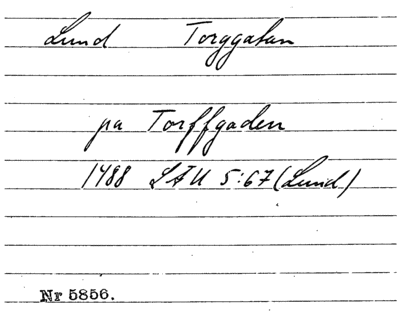 Lund Torggatan
pa Torffgaden
1488 LÄU 5:67 (Lund)
Nr 5856.